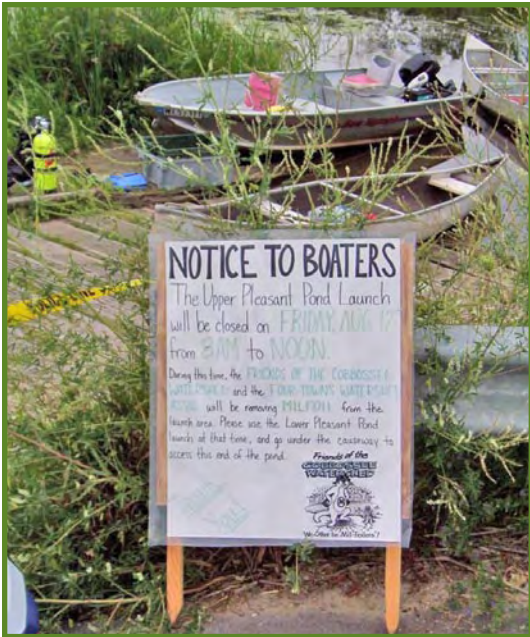 NOTICE TO BOATERS
The Upper Pleasant Pond Launch
will be closed on FRIDAY, AUG 17
from 8AM to NOON.
During this time, the FRIENDS OF THE COBBOSSEE
WATERSHED and the FOUR TOWNS WATERSHED
will be removing MILFOIL from the
launch area. Please use the Lower Pleasant Pond
launch at that time, and go under the causeway to
access this end of the pond.
Friends of the
COBBOSSEE
WATERSHED